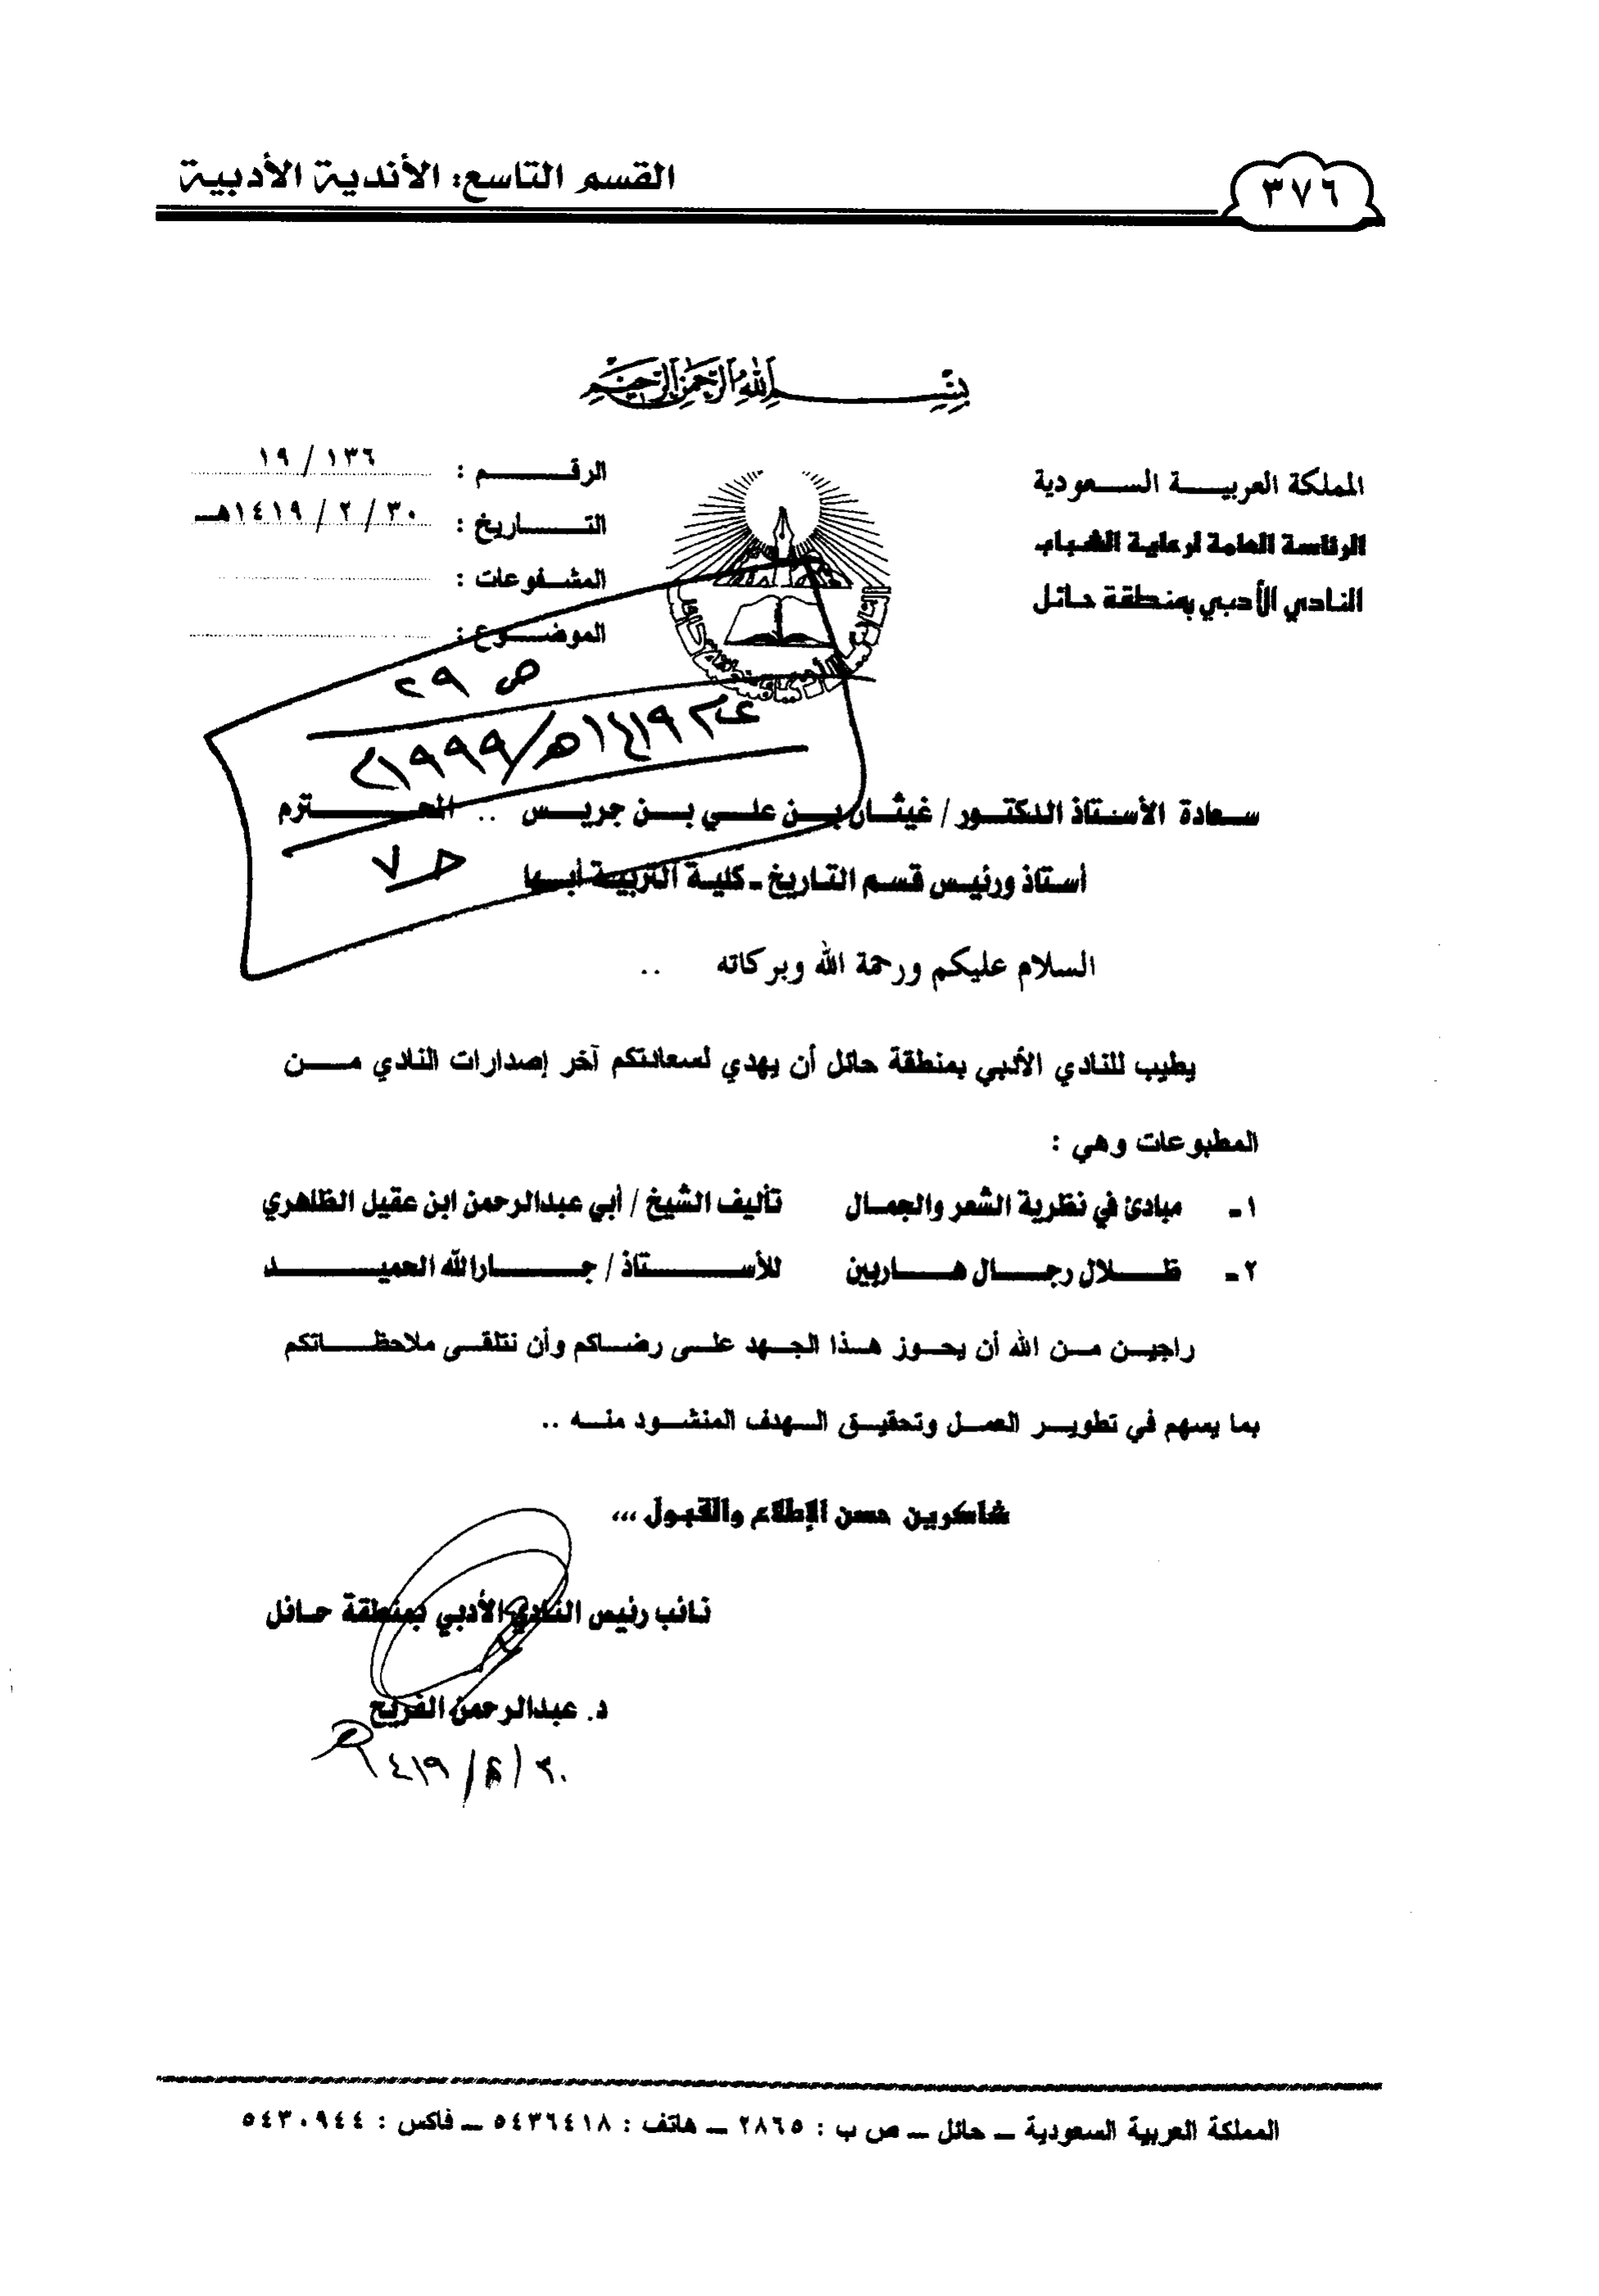 القسم التاسع: الأندية الأدبية
٣٧٦
بسم الله الرحمن الرحيم
المملكة العربية السعودية
الرئاسة العامة لرعاية الشباب
النادي الأدبي بمنطقة حائل
الرقم : ١٣٦ / ١٩
التاريخ : ٣٠ / ٢ / ١٤١٩هـ
المشفوعات :
الموضوع :
ص ٢٩
١٤١٩هـ/١٩٩٩م
سعادة الأستاذ الدكتور / غيثان بن علي بن جريس .. المحترم
أستاذ ورئيس قسم التاريخ ـ كلية التربية أبها
السلام عليكم ورحمة الله وبركاته ..
يطيب للنادي الأدبي بمنطقة حائل أن يهدي لسعادتكم آخر إصدارات النادي من
المطبوعات وهي :
١ـ مبادئ في نظرية الشعر والجمال تأليف الشيخ / أبي عبدالرحمن ابن عقيل الظاهري
٢ـ ظلال رجال هاربين للأستاذ / جارالله الحميد
راجين من الله أن يحوز هذا الجهد على رضاكم وأن نتلقى ملاحظاتكم
بما يسهم في تطوير العمل وتحقيق الهدف المنشود منه ..
شاكرين حسن الإطلاع والقبول ...
نائب رئيس النادي الأدبي بمنطقة حائل
د. عبدالرحمن الفريح
المملكة العربية السعودية ــ حائل ــ ص ب : ٢٨٦٥ ــ هاتف : ٥٤٣٦٤١٨ ــ فاكس : ٥٤٣٠٩٤٤